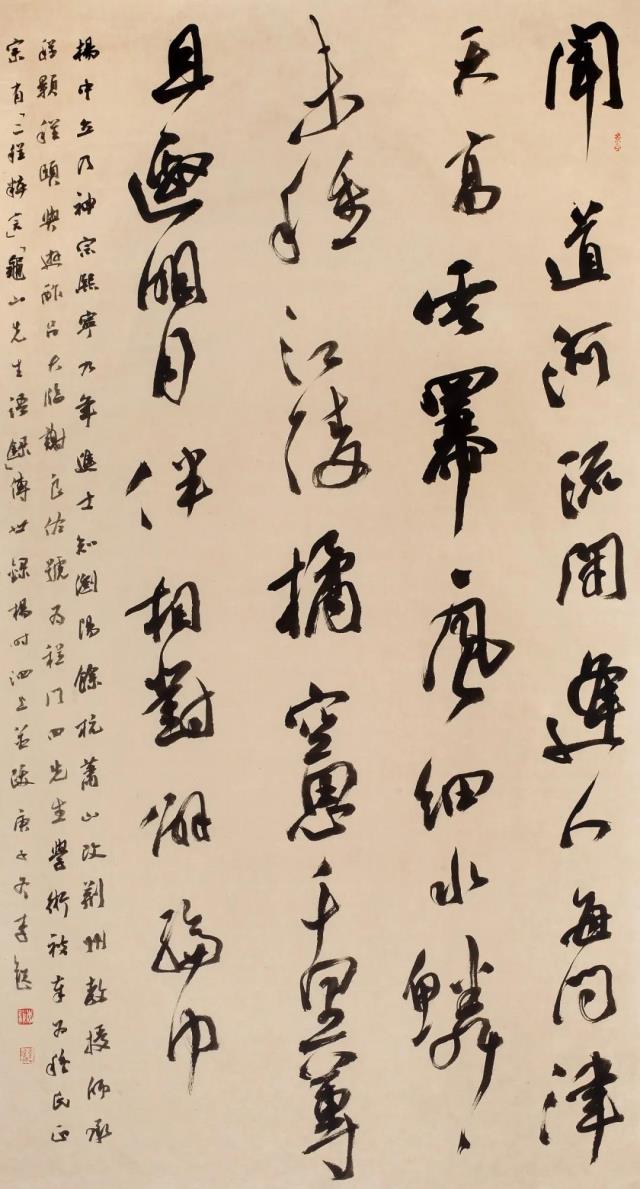 聞道河流開逢人每問津
天高雲冪、風細水鱗、
未種江陵橘空思千里蓴
且邀明月伴相對綸巾
楊中立乃神宗熙寧九年進士知瀏陽餘杭蕭山改荊州教授師承
程顥程頤與游酢呂大臨謝良佐號為程門四先生學術被奉為程氏正
宗有「二程粹言」「龜山先生語錄」傳世錄楊時泗上並跋庚子冬李